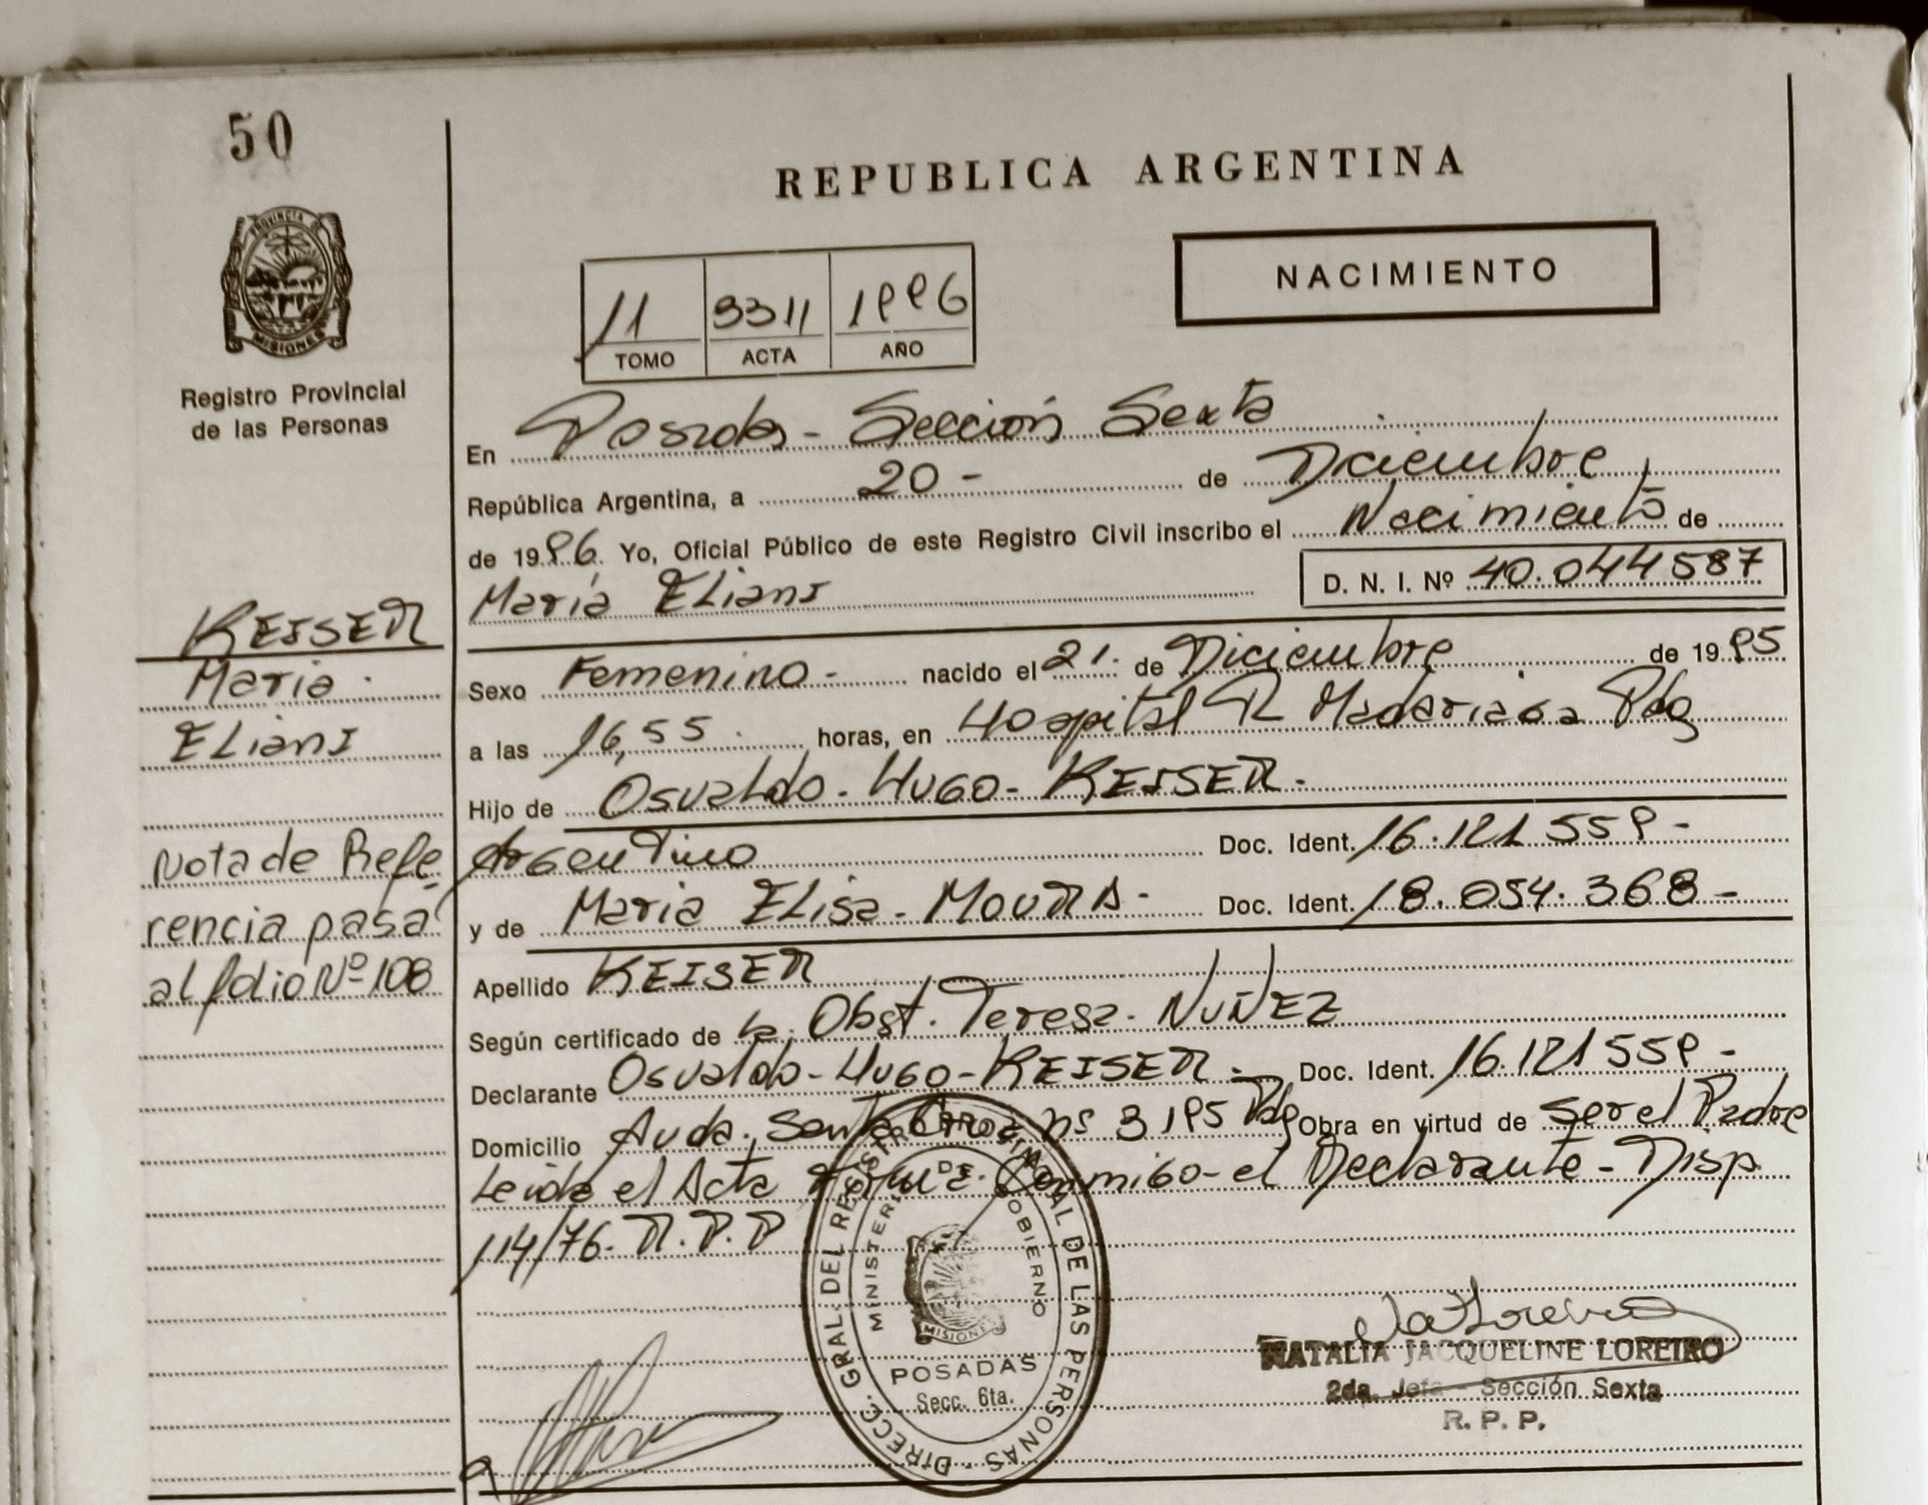 50
REPUBLICA ARGENTINA
PROVINCIA D
MISIONES
NACIMIENTO
11 3311 1996
TOMO ACTA AÑO
Registro Provincial
de las Personas
En Posadas - Sección Sexta
República Argentina, a 20 - de Diciembre
de 1996. Yo, Oficial Público de este Registro Civil inscribo el Nacimiento de
María ELianI D. N. I. Nº 40.044587
KEISER
Maria
ELianI
Sexo Femenino - nacido el 21. de Diciembre de 1995
a las 16,55. horas, en Hospital R Madariaga Pdas
Hijo de Osvaldo - Hugo - KEISER -
Argentino Doc. Ident. 16.121559 -
y de Maria ELisa - MOURA - Doc. Ident. 18.054.368 -
Nota de Refe
rencia pasa
al folio Nº 108
Apellido KEISER
Según certificado de la Obst. Teresa - NUÑEZ
Declarante Osvaldo - Hugo - KEISER - Doc. Ident. 16.121559 -
Domicilio Avda. Santa Cruz nº 3195 Pdas Obra en virtud de ser el Padre
Leida el Acta Firma Conmigo - el Declarante - Disp.
114/76 - R.P.P
DIRECC. GRAL. DEL REGISTRO PROVINCIAL DE LAS PERSONAS
MINISTERIO DE GOBIERNO
MISIONES
POSADAS
Secc. 6ta.
NATALIA JACQUELINE LOREIRO
2da. Jefa - Sección Sexta
R. P. P.